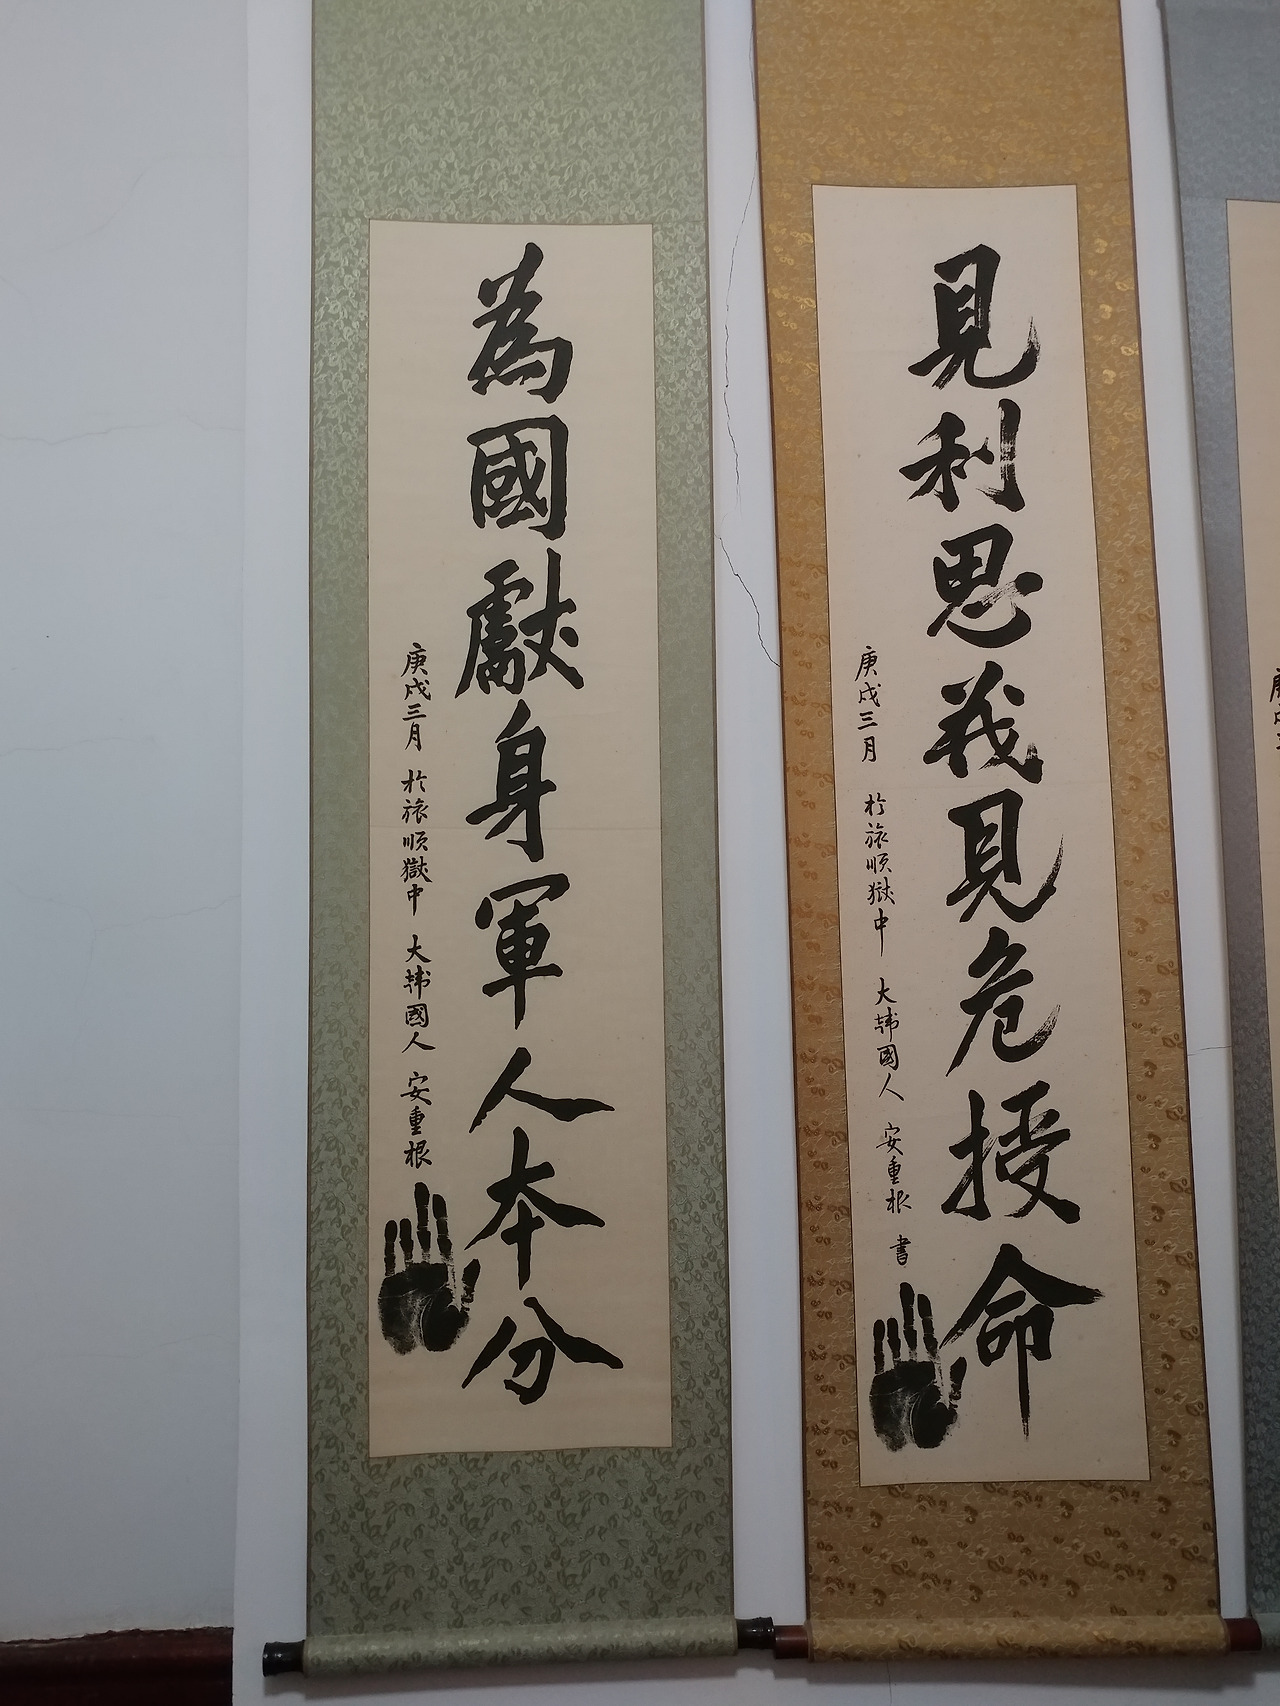 為國獻身軍人本分
庚戌三月 於旅順獄中 大韓國人 安重根
見利思義見危授命
庚戌三月 於旅順獄中 大韓國人 安重根 書